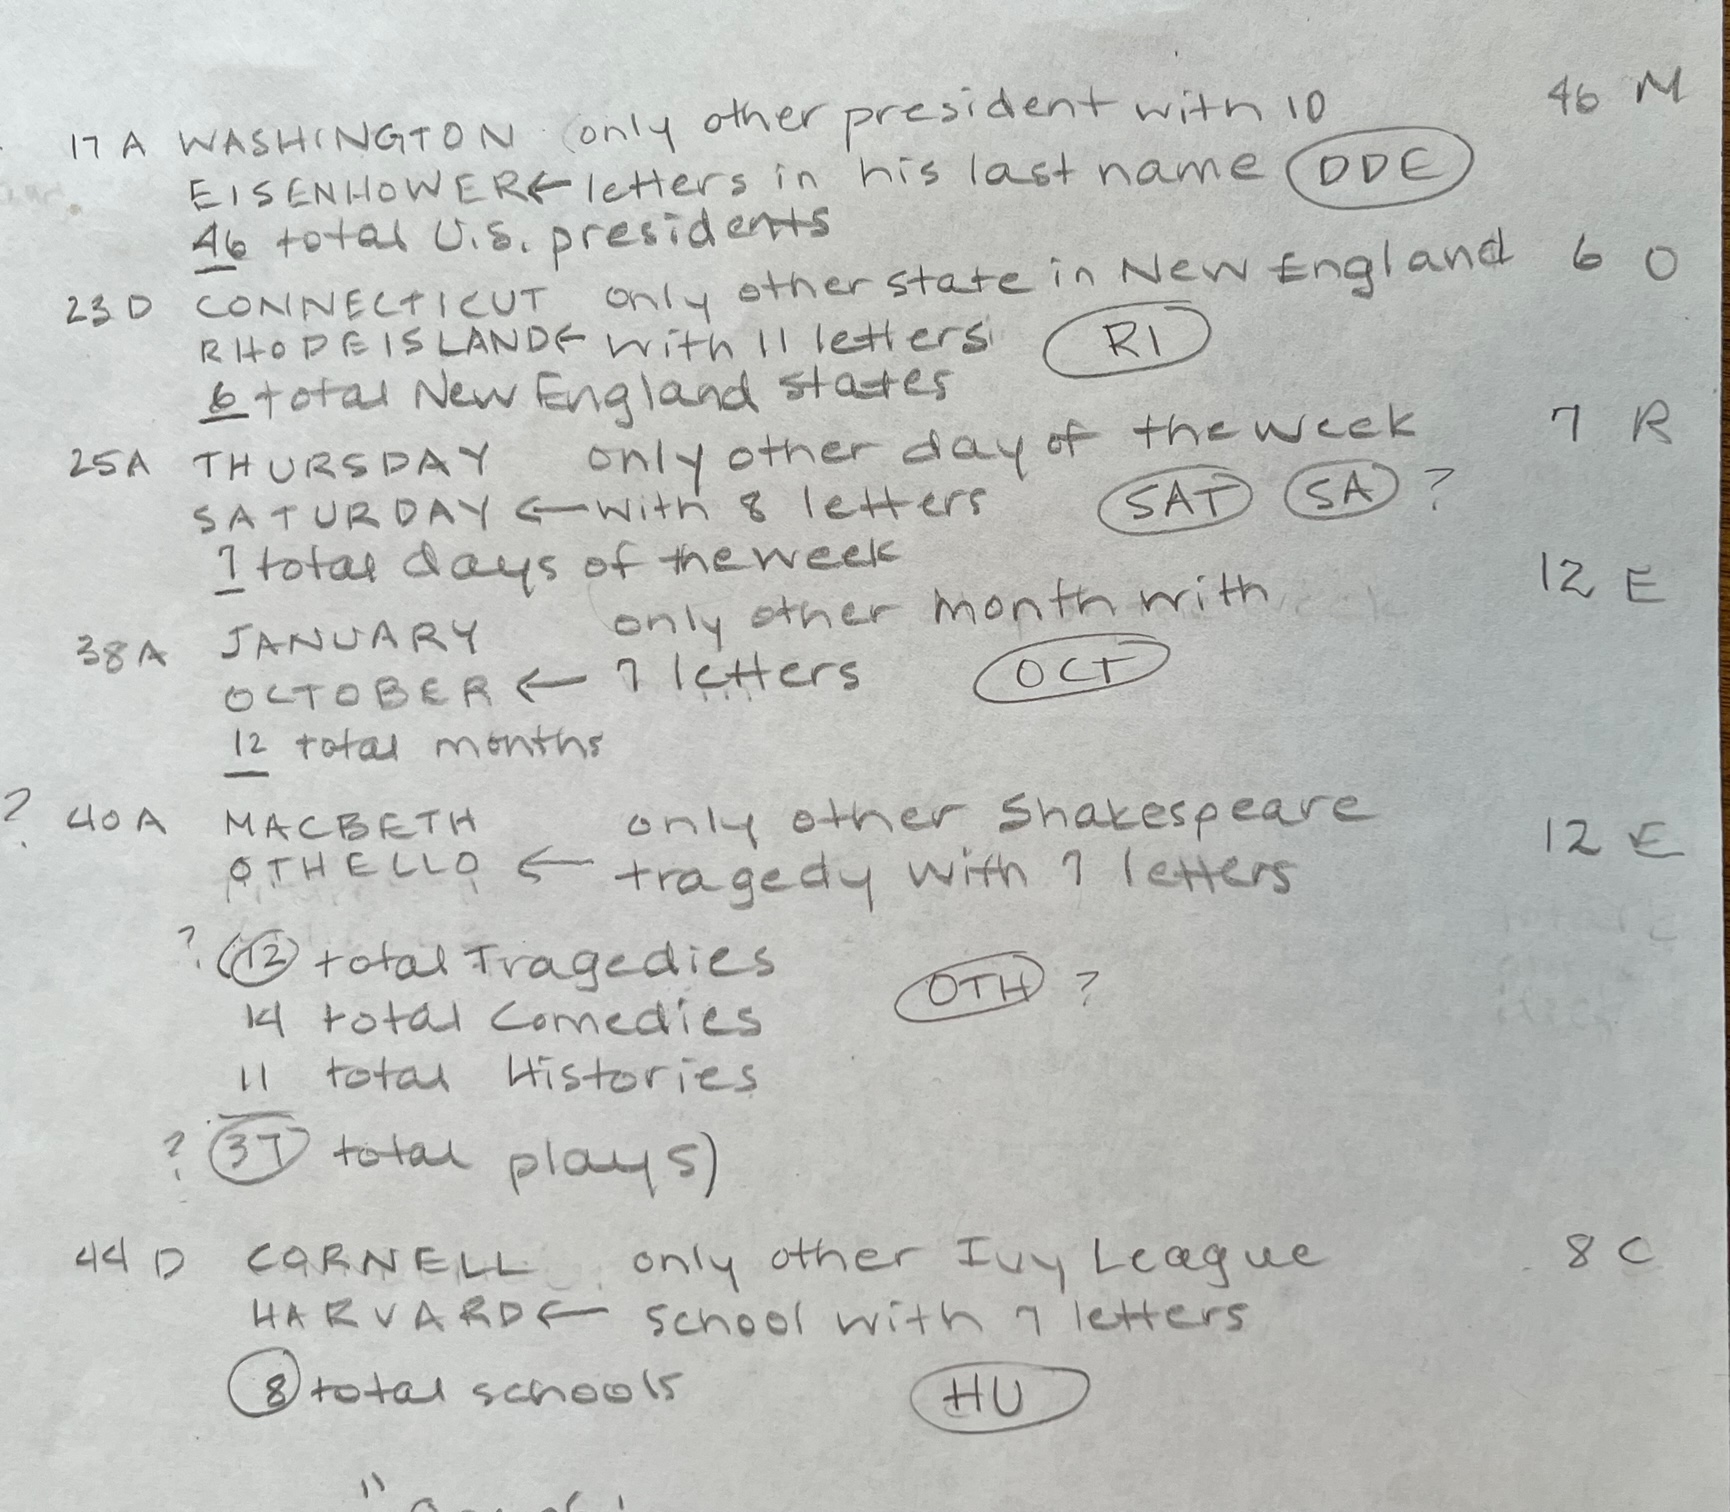 17 A WASHINGTON (only other president with 10 46 M
EISENHOWER ← letters in his last name DDE
46 total U.S. presidents
23 D CONNECTICUT only other state in New England 6 O
RHODEISLAND ← with 11 letters RI
6 total New England states
25A THURSDAY only other day of the week 7 R
SATURDAY ← with 8 letters SAT SA ?
7 total days of the week
38A JANUARY only other month with 12 E
OCTOBER ← 7 letters OCT
12 total months
? 40A MACBETH only other Shakespeare 12 E
OTHELLO ← tragedy with 7 letters
? (12 total Tragedies
OTH ?
14 total Comedies
11 total Histories
? 37 total plays)
44 D CORNELL only other Ivy League 8 C
HARVARD ← school with 7 letters
8 total schools HU